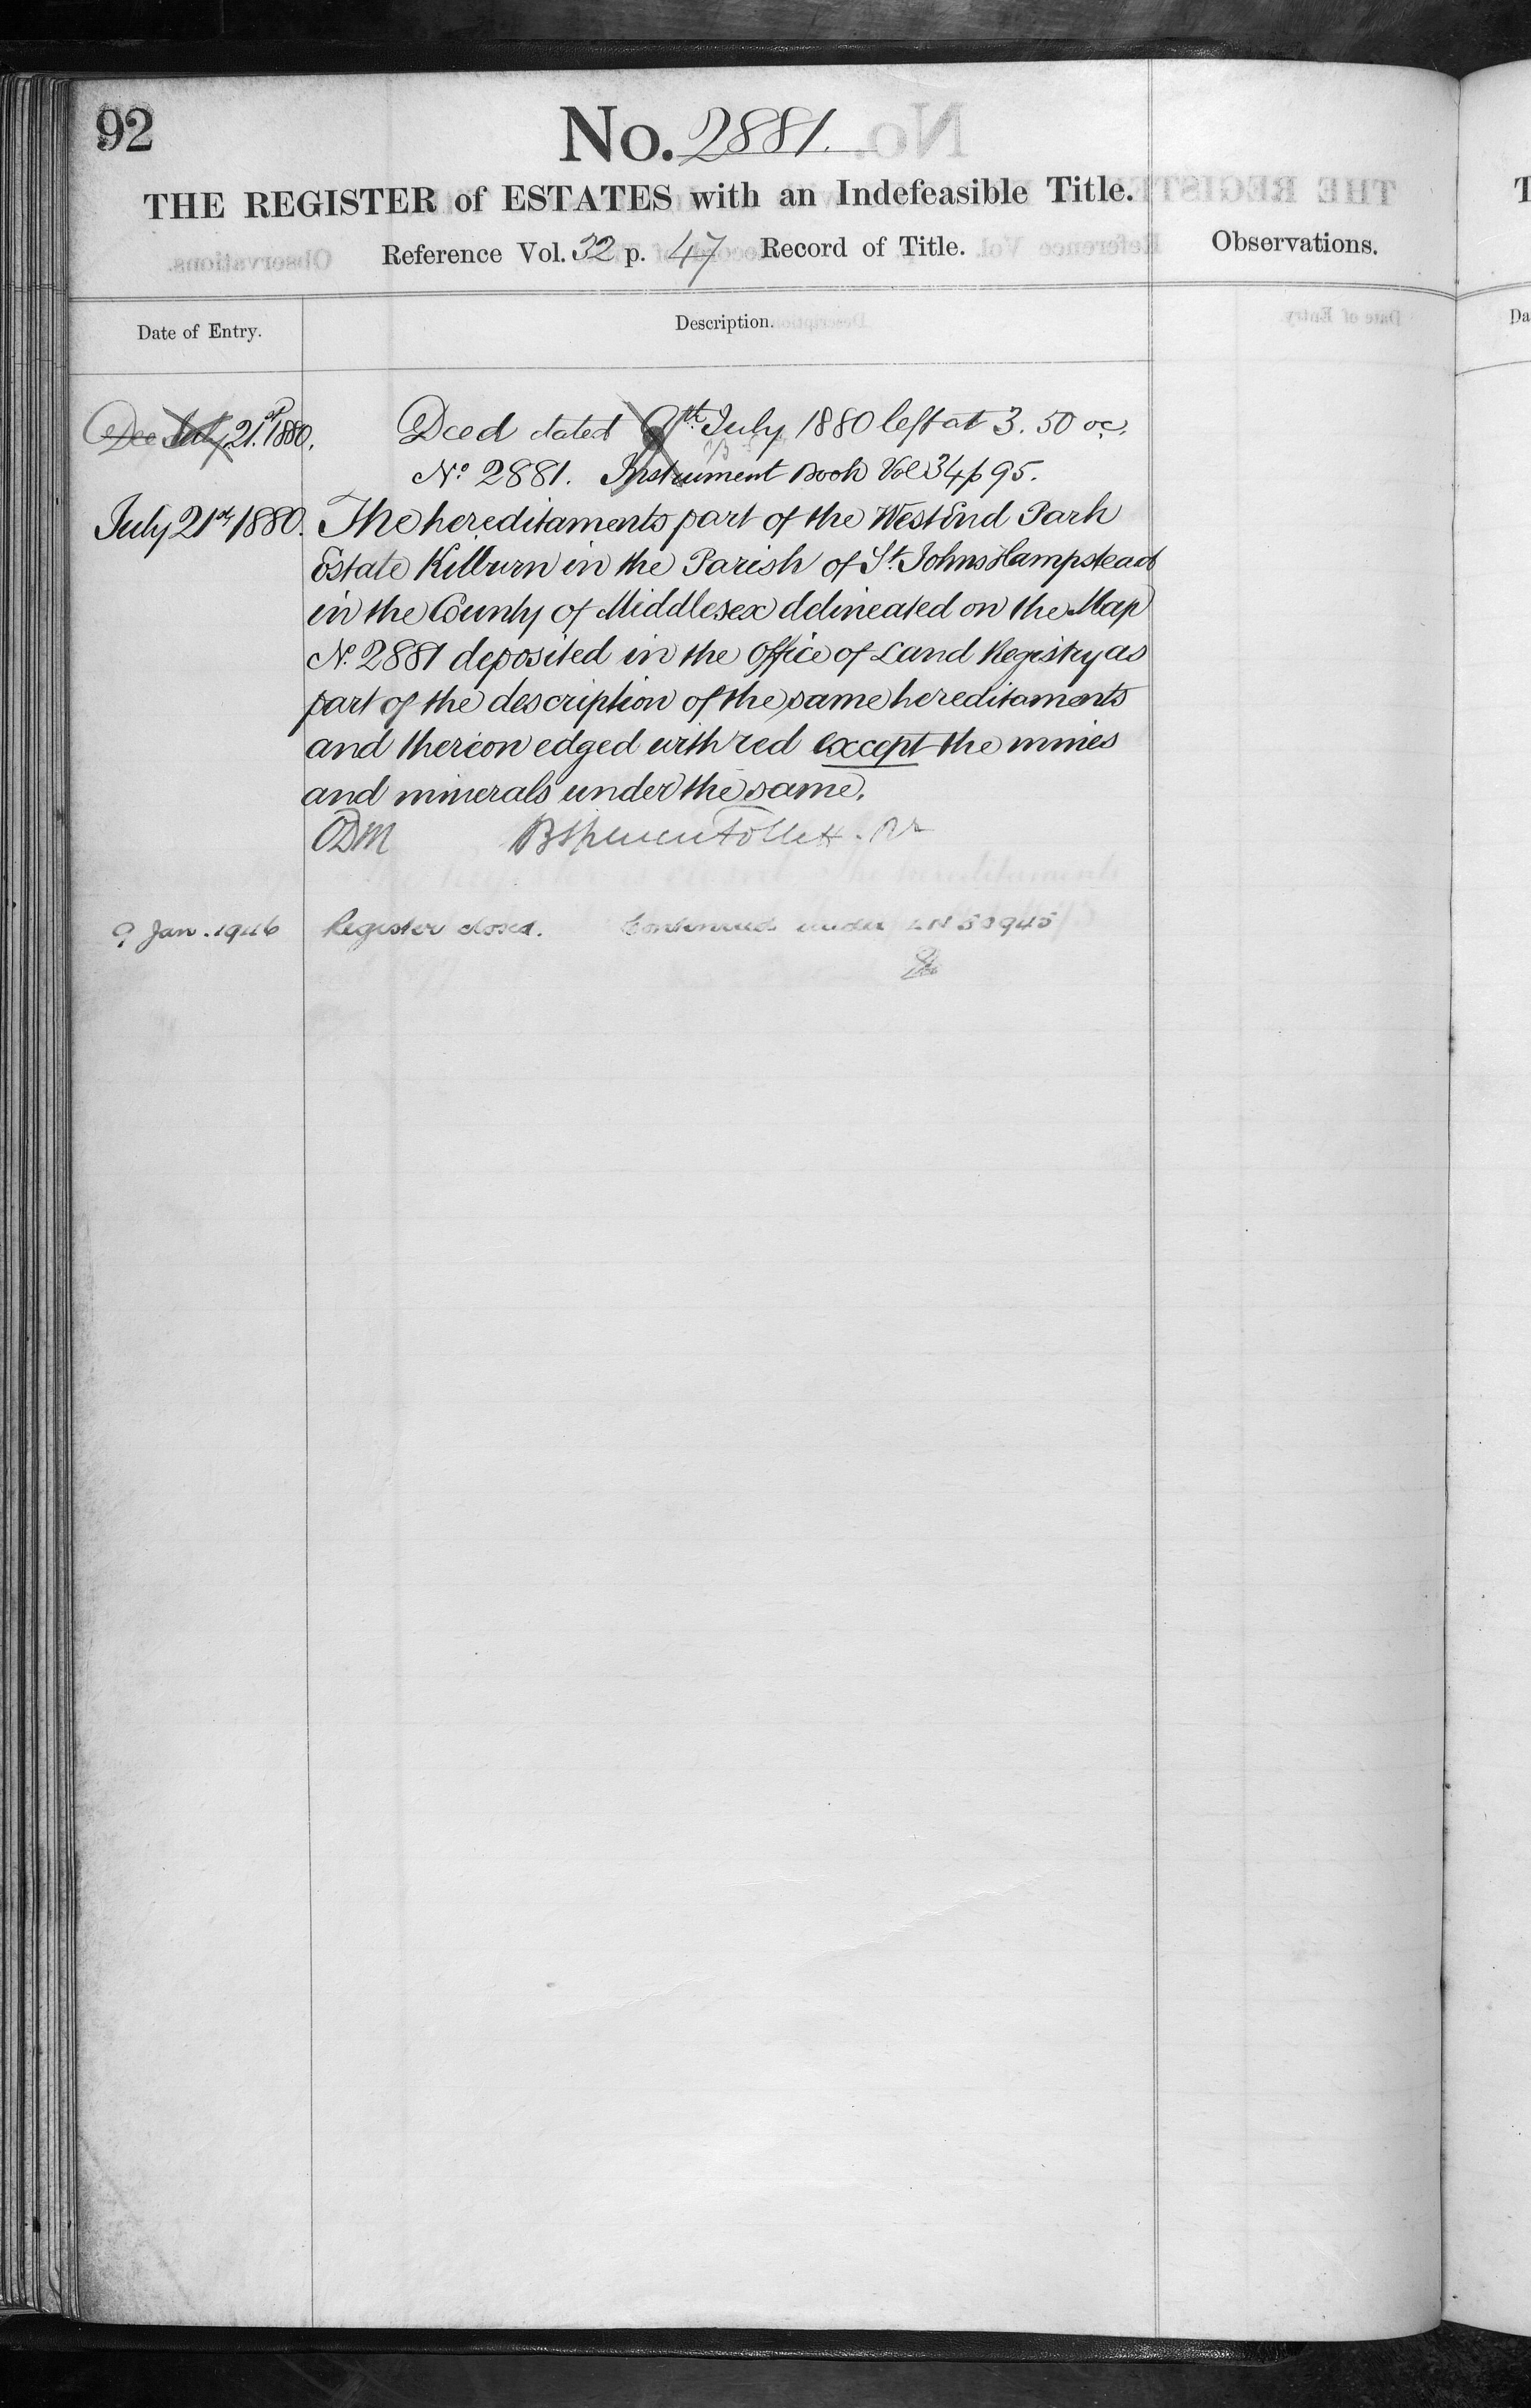 92
No. 2881.
THE REGISTER of ESTATES with an Indefeasible Title.
Reference Vol. 32 p. 47 Record of Title.
Observations.
Date of Entry.
Description.
Dec July 21st 1880.
Deed dated 9th July 1880 left at 3.50 oc.
No 2881. Instrument Book Vol 34 p 95.
July 21st 1880. The hereditaments part of the West End Park
Estate Kilburn in the Parish of St. Johns Hampstead
in the County of Middlesex delineated on the Map
No. 2881 deposited in the Office of Land Registry as
part of the description of the same hereditaments
and thereon edged with red except the mines
and minerals under the same.
ODM
9 Jan. 1946 Register closed. Continued under LN 50945